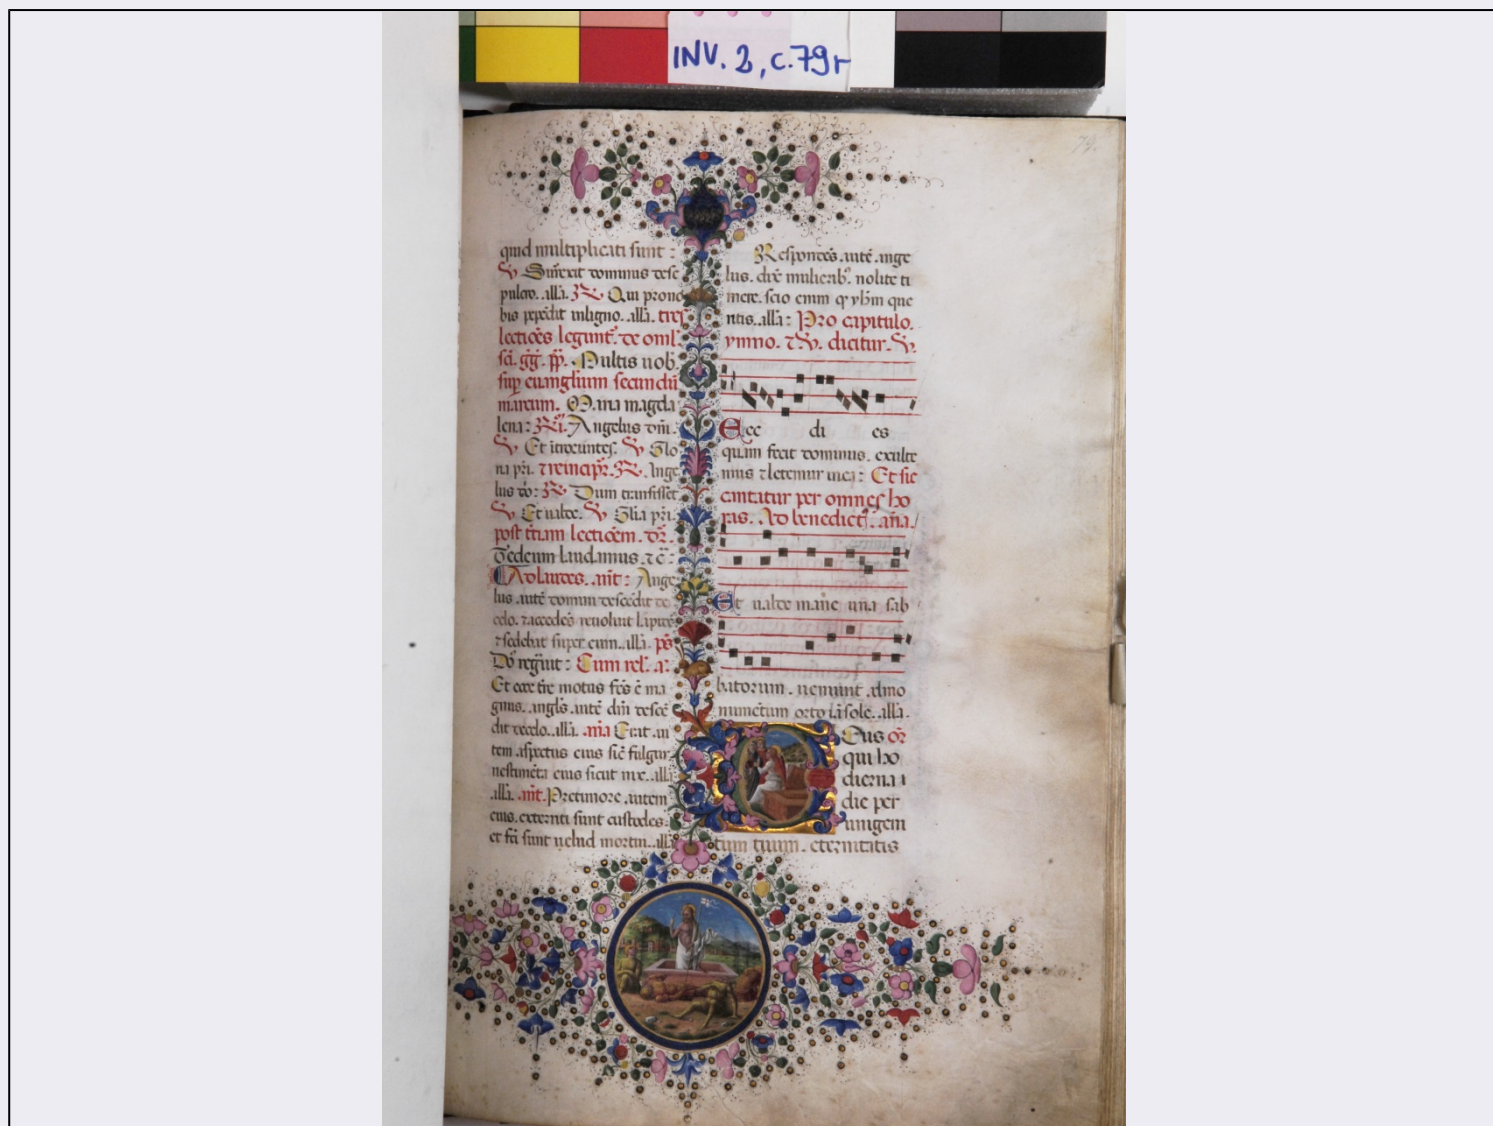 INV. 2, c.79r
79.
quid multiplicati sunt:
dominus

bis pependit inligno. allã. tres
lectiões legunt̃. de omĩl.
scĩ. gg̃. pp̃. Multis uob
sup euanglium secundũ
marcum. Maria magda
lena: Angelus dñi.
Et ĩtroeũtes. Glo
ria pr̃i. Ange
lus Dum transisset
Et ualde. Glia pr̃i.
post
Tedeum laudamus.
Ad laudes. añt: Ange
lus autẽ domini descẽdit de
celo. reuoluit lapidẽ
sedebat super eum. allã. ps̃
Dñs regñuit: Cum rel.
Et ecce motus ma
gnus. angls̃. autẽ dñi descẽ
dit decelo. allã. Erat au
tem aspectus eius sic̃ fulgur
uestimẽta eius sicut nix. allã
allã. añt. Pretimore. autem
eius. exterriti sunt custodes.
et fcĩ sunt uelud mortui. allã
Respondẽs. autẽ. ange
lus. dix̃ mulierib3. nolite ti
mere. scio enim que
ritis. allã: Pro capitulo.
ymno. dicitur.
Ecc di es
quam fecit dominus. exulte
mus letemur inea: Et sic
cantatur per omnes ho
ras. Ad benedict̃. añã.
Et ualde mane una sab
batorum. ueniunt. admo
numẽtum orto iã sole. allã.
Deus or̃
qui ho
dierna
die per
unigeni
tum tuum. eternitatis